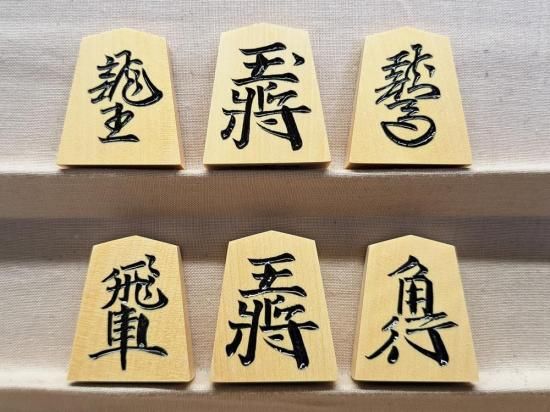 龍王
玉將
龍馬
飛車
王將
角行